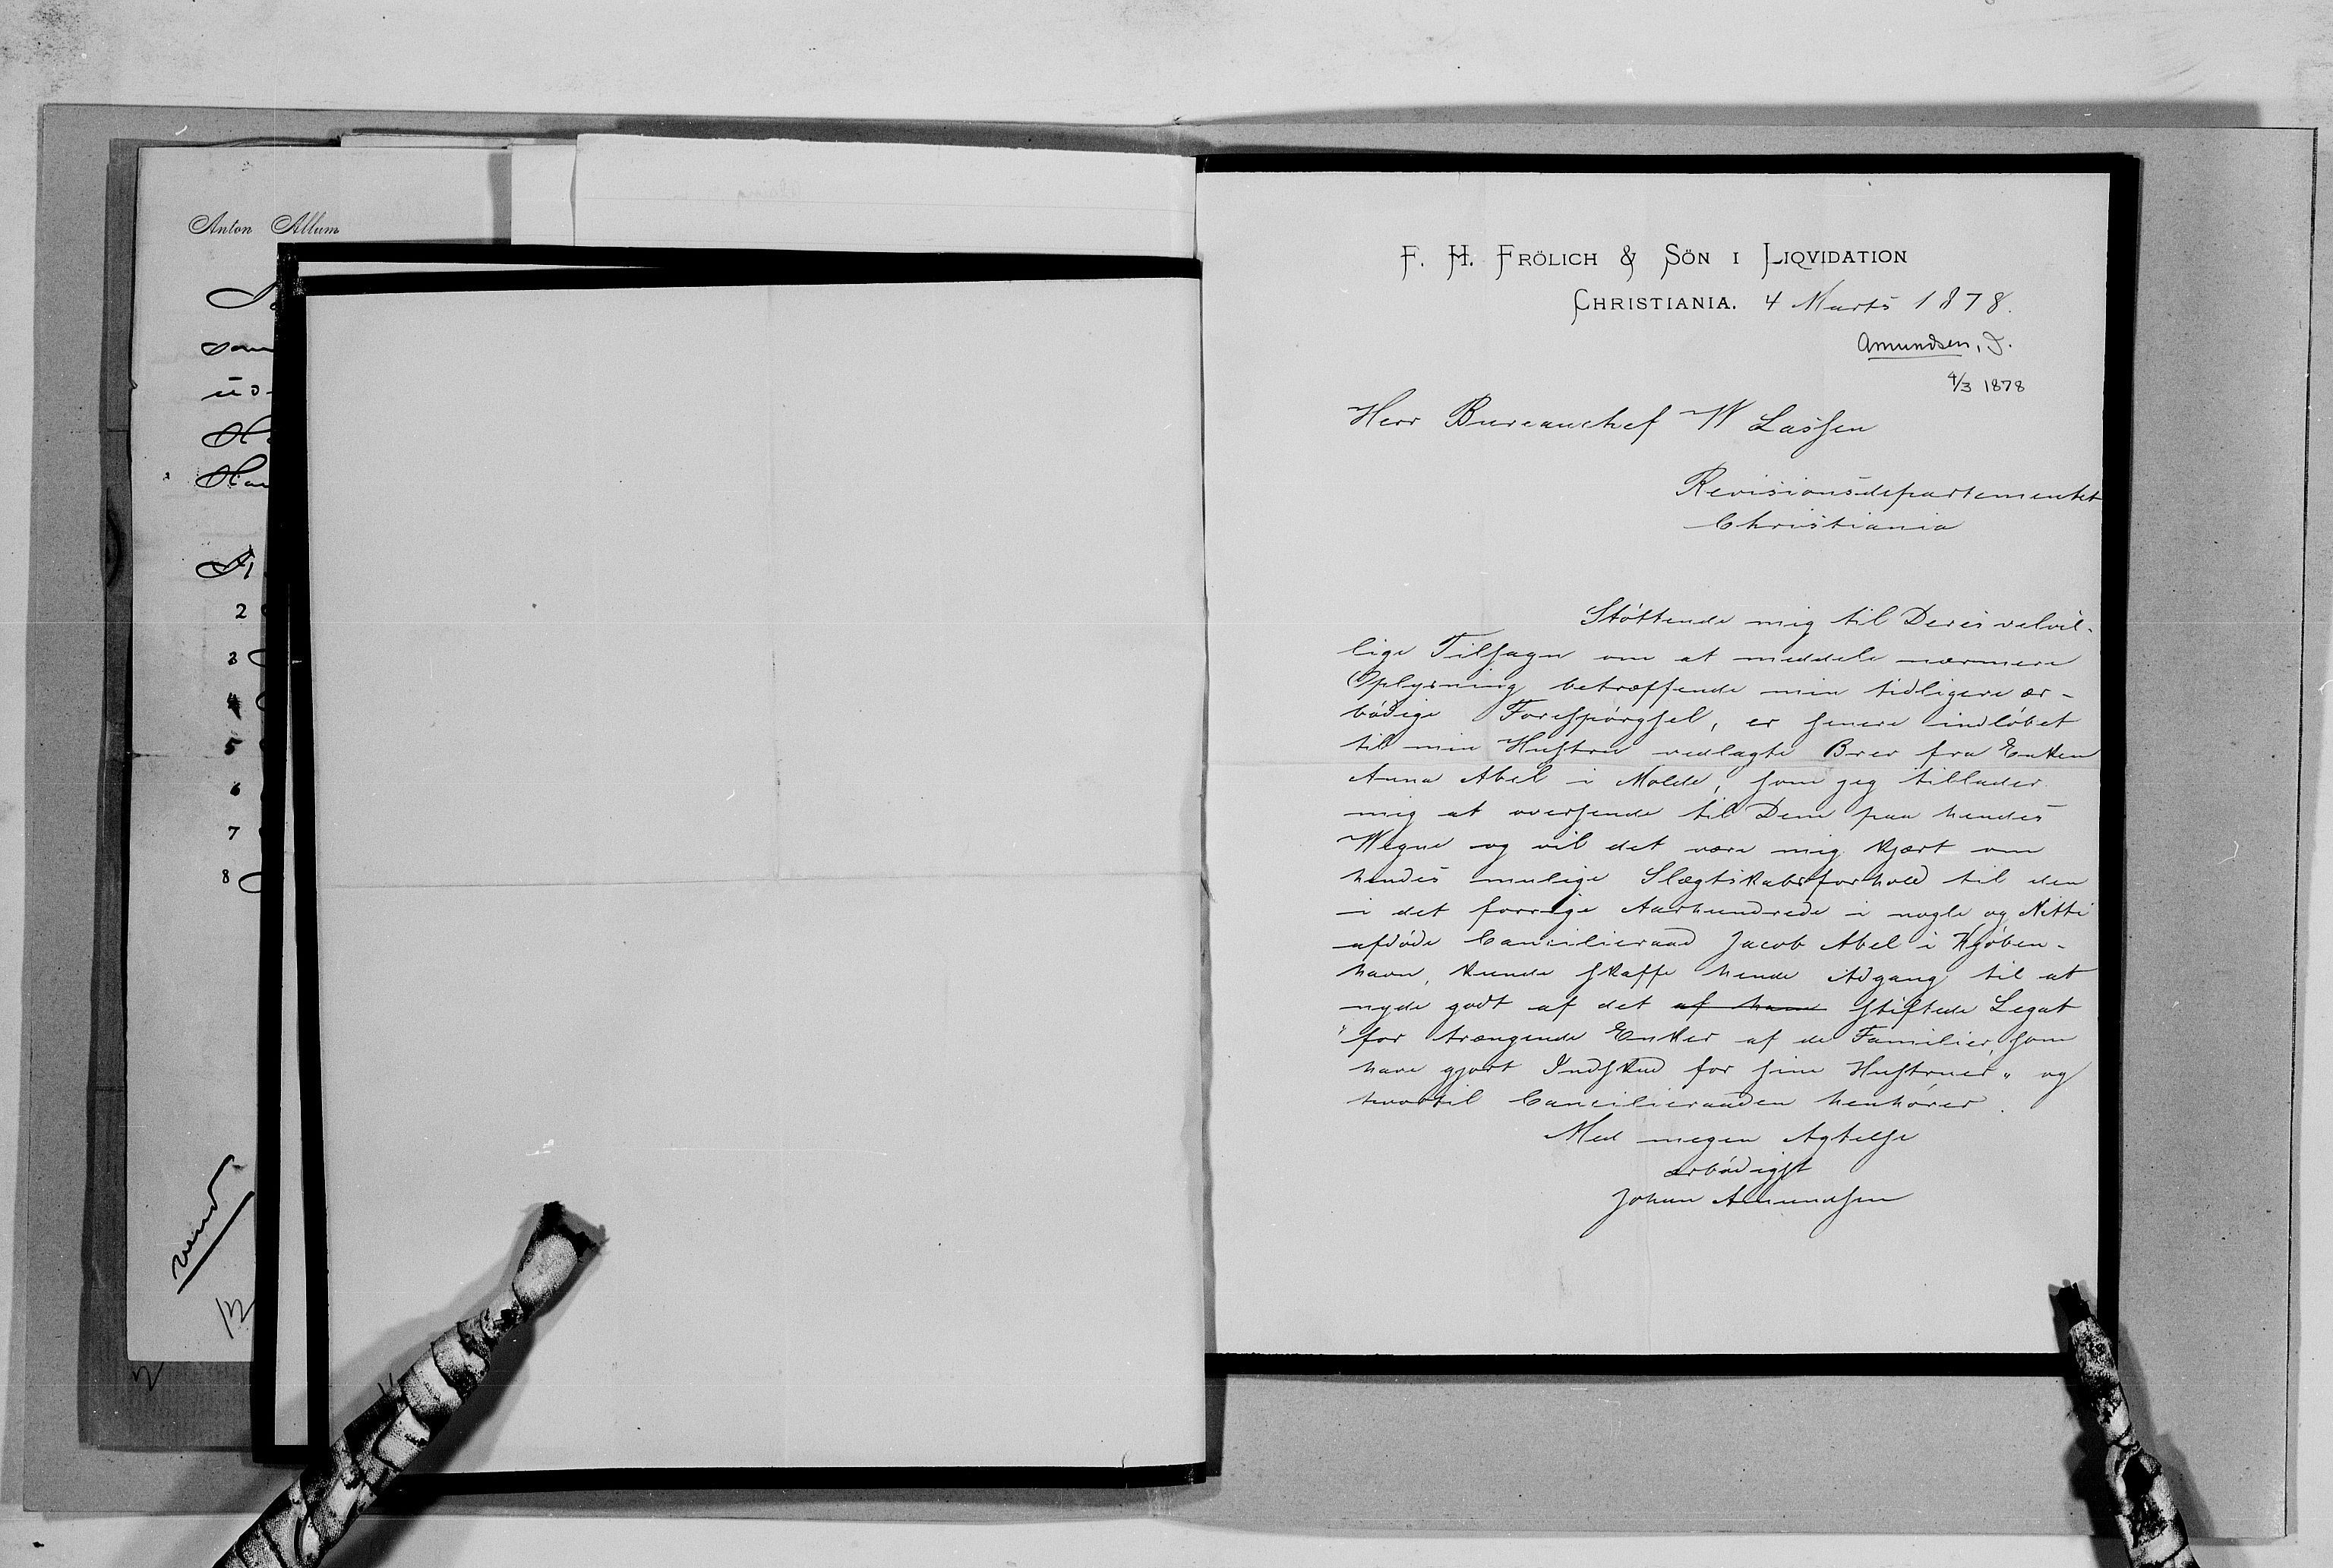 Anton Allum
2
3
4
5
6
7
8
vend
F. H. Frölich & Sön i Liqvidation
Christiania. 4 Marts 1878.
Amundsen, J.
4/3 1878
Herr Bureauchef W Lassen
Revisionsdepartementet
Christiania
Støttende mig til Deres velvil-
lige Tilsagn om at meddele nærmere
Oplysning betræffende min tidligere ær-
bødige Forespørgsel, er senere indløbet
til min Hustru vedlagte Brev fra Enken
Anna Abel i Molde, som jeg tillader
mig at oversende til Dem paa hendes
Wegne og vil det være mig kjært om
hendes mulige Slægtskabsforhold til den
i det forrige Aarhundrede i nogle og Nitti
afdøde Cancilieraad Jacob Abel i Kjøben-
havn, kunde skaffe hende Adgang til at
nyde godt af det af ham stiftede Legat
"for trængende Enker af de Familier, som
have gjort Indskud for sine Hustruer" og
hvortil Cancilieraaden henhører.
Med megen Agtelse
ærbødigst
Johan Amundsen